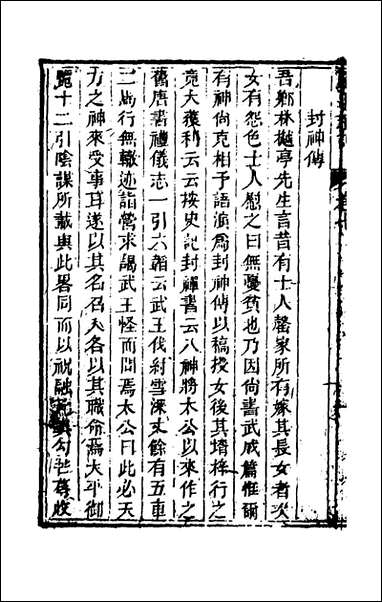 封神傳
吾鄉林樾亭先生言昔有士人罄家所有嫁其長女者次
女有怨色士人慰之曰無憂貧也乃因尚書武成篇惟爾
有神尚克相予語演為封神傳以稿授女後其壻梓行之
竟大獲利云云按史記封禪書云八神將太公以來作之
舊唐書禮儀志一引六韜云武王伐紂雪深丈餘有五車
二馬行無轍迹詣營求謁武王怪而問焉太公曰此必天
方之神來受事耳遂以其名召入各以其職命焉太平御
覽十二引陰謀所載與此畧同而以祝融 勾芒蓐收